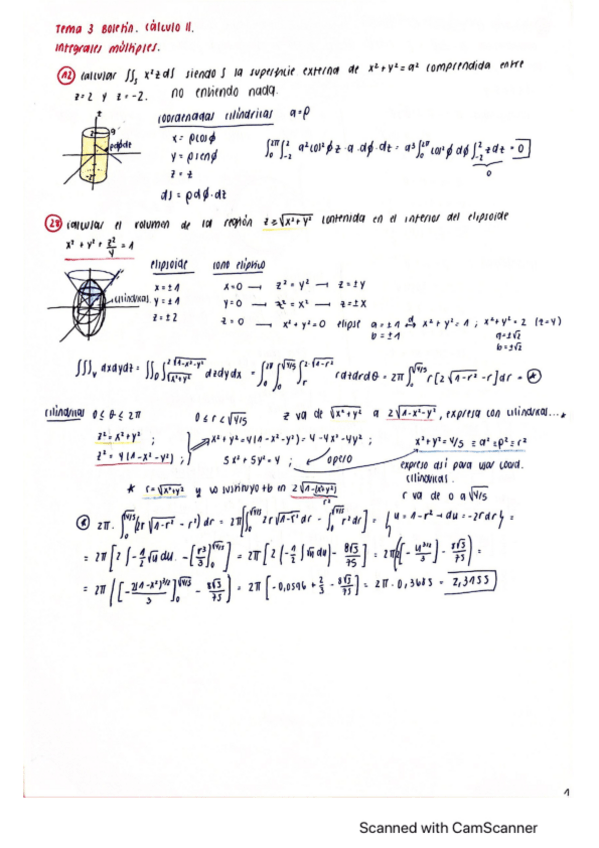 Tema 3 Boletín. Cálculo II.
Integrales múltiples.
12 calcular ∬s x²z ds siendo S la superficie externa de x²+y²=a² comprendida entre
z=2 y z=-2. no entiendo nada.
coordenadas cilíndricas a=ρ
x = ρcosϕ
y = ρsenϕ
z = z
ds = ρdϕ·dz
∫₀^2π ∫₋₂^2 a²cos²ϕ z · a · dϕ · dz = a³ ∫₀^2π cos²ϕ dϕ ∫₋₂^2 zdz = 0
0
28 calcular el volumen de la región z≥√x²+y² contenida en el interior del elipsoide
x² + y² + z²/4 = 1
elipsoide cono elíptico
x=±1 x=0 → z² = y² → z=±y
y=±1 y=0 → z² = x² → z=±x
z=±2 z=0 → x²+y²=0 elipse a=±1 → x²+y²=1 ; x²+y²=2
b=±1 a=±√2
b=±√2
cilíndricas.
∭v dxdydz = ∬D ∫√x²+y² ^2√1-x²-y² dzdydx = ∫₀^2π ∫₀^√4/5 ∫r ^2√1-r² rdzdrdθ = 2π ∫₀^√4/5 r[2√1-r² - r]dr = *
cilíndricas 0≤θ≤2π 0≤r≤√4/5 z va de √x²+y² a 2√1-x²-y², expresa con cilíndricas...*
z² = x²+y² ;
z² = 4(1-x²-y²) ; x²+y²=4(1-x²-y²) = 4-4x²-4y² ; x²+y²=4/5 = a² = ρ² = r²
5x²+5y²=4 ; opero expreso así para usar coord.
cilíndricas.
* r=√x²+y² y lo sustituyo tb en 2√1-(x²+y²) r va de 0 a √4/5
r²
* 2π · ∫₀^√4/5 (2r√1-r² - r²)dr = 2π[∫₀^√4/5 2r√1-r² dr - ∫₀^√4/5 r²dr] = {u=1-r² → du=-2rdr} =
= 2π[2∫-1/2 √u du - [r³/3]₀^√4/5] = 2π[2(-1/2 ∫√u du) - 8√5/75] = 2π[[-u^3/2/3] - 8√5/75] =
= 2π[[-2(1-x²)^3/2/3]₀^√4/5 - 8√5/75] = 2π[-0,0596 + 2/3 - 8√5/75] = 2π · 0,3685 = 2,3155
1
Scanned with CamScanner